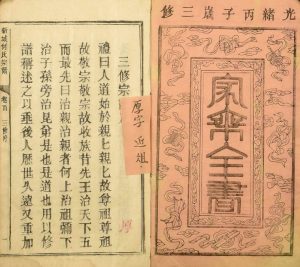 光緒丙子歲三修
家乘全書
厚字 近組
三修宗
禮曰人道始於親七親匕故尊祖尊祖
故敬宗敬宗故收族昔先王治天下五
而最先曰治親治親者何上治祖禰下
治子孫旁治昆弟是也是道也用以修
譜稱述之以垂後人歷世久遠又重加